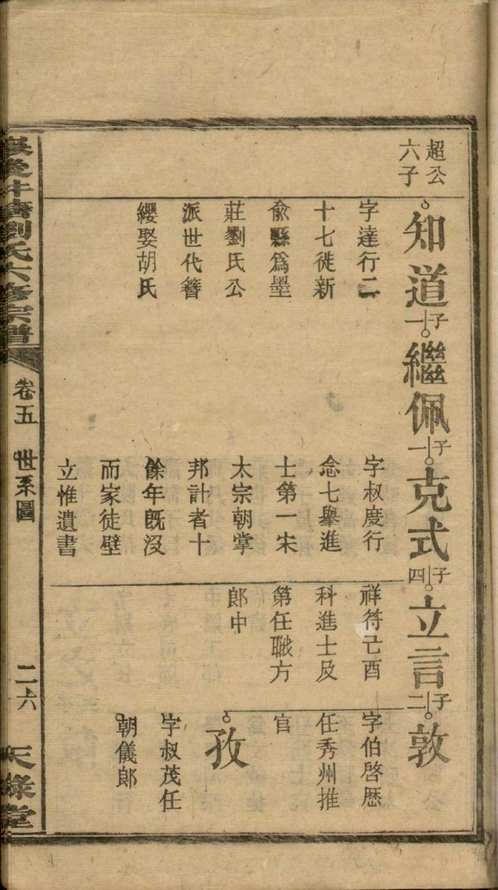 超公
六子
知道
子一
繼佩
子一
克式
子四
立言
子二
敦
字達行二
十七徙新
俞縣爲墨
莊劉氏公
派世代簪
纓娶胡氏
字叔慶行
念七舉進
士第一宋
太宗朝掌
邦計者十
餘年既沒
而家徒壁
立惟遺書
祥符己酉
科進士及
第任職方
郎中
字伯啓歷
任秀州推
官
孜
字叔茂任
朝儀郎
劉氏六修宗譜
卷五
世系圖
二六
天祿堂